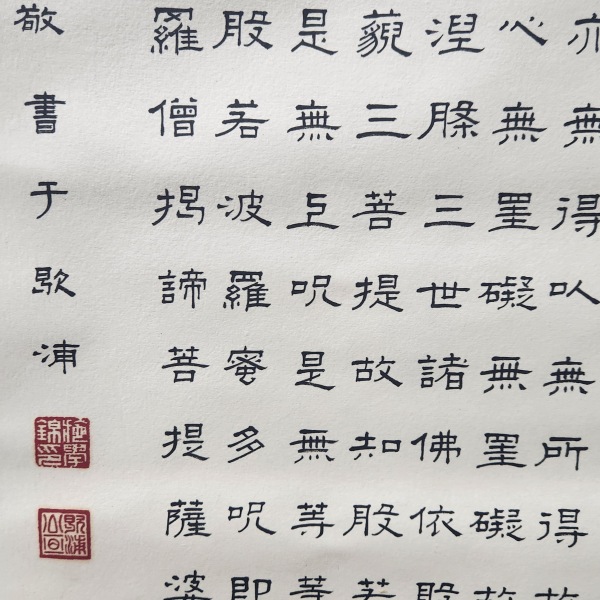 亦無得以無所得故
心無罣礙無罣礙故
涅槃三世諸佛依般
藐三菩提故知般若
是無上呪是無等等
般若波羅蜜多呪即
羅僧揭諦菩提薩婆
敬書于歇浦
施學錦印